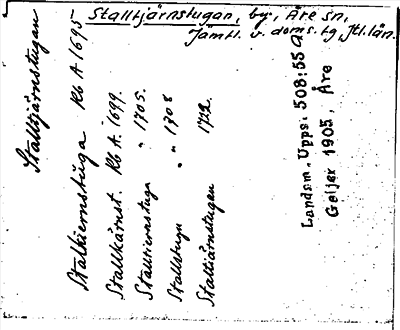 Stalltjärnstugan, by, Åre sn,
Jämtl. v. doms. tg, Jtl. län.
Stalltjärnstugan
Stalkiernstuga Kb A 1695
Stallkärnst. Kb A. 1699.
Stalltiernstuga " 1705.
Stallstugu " " 1708
Stalltjärnstugan 1722.
Landsm. Upps: 508:55 a
Geijer 1905, Åre